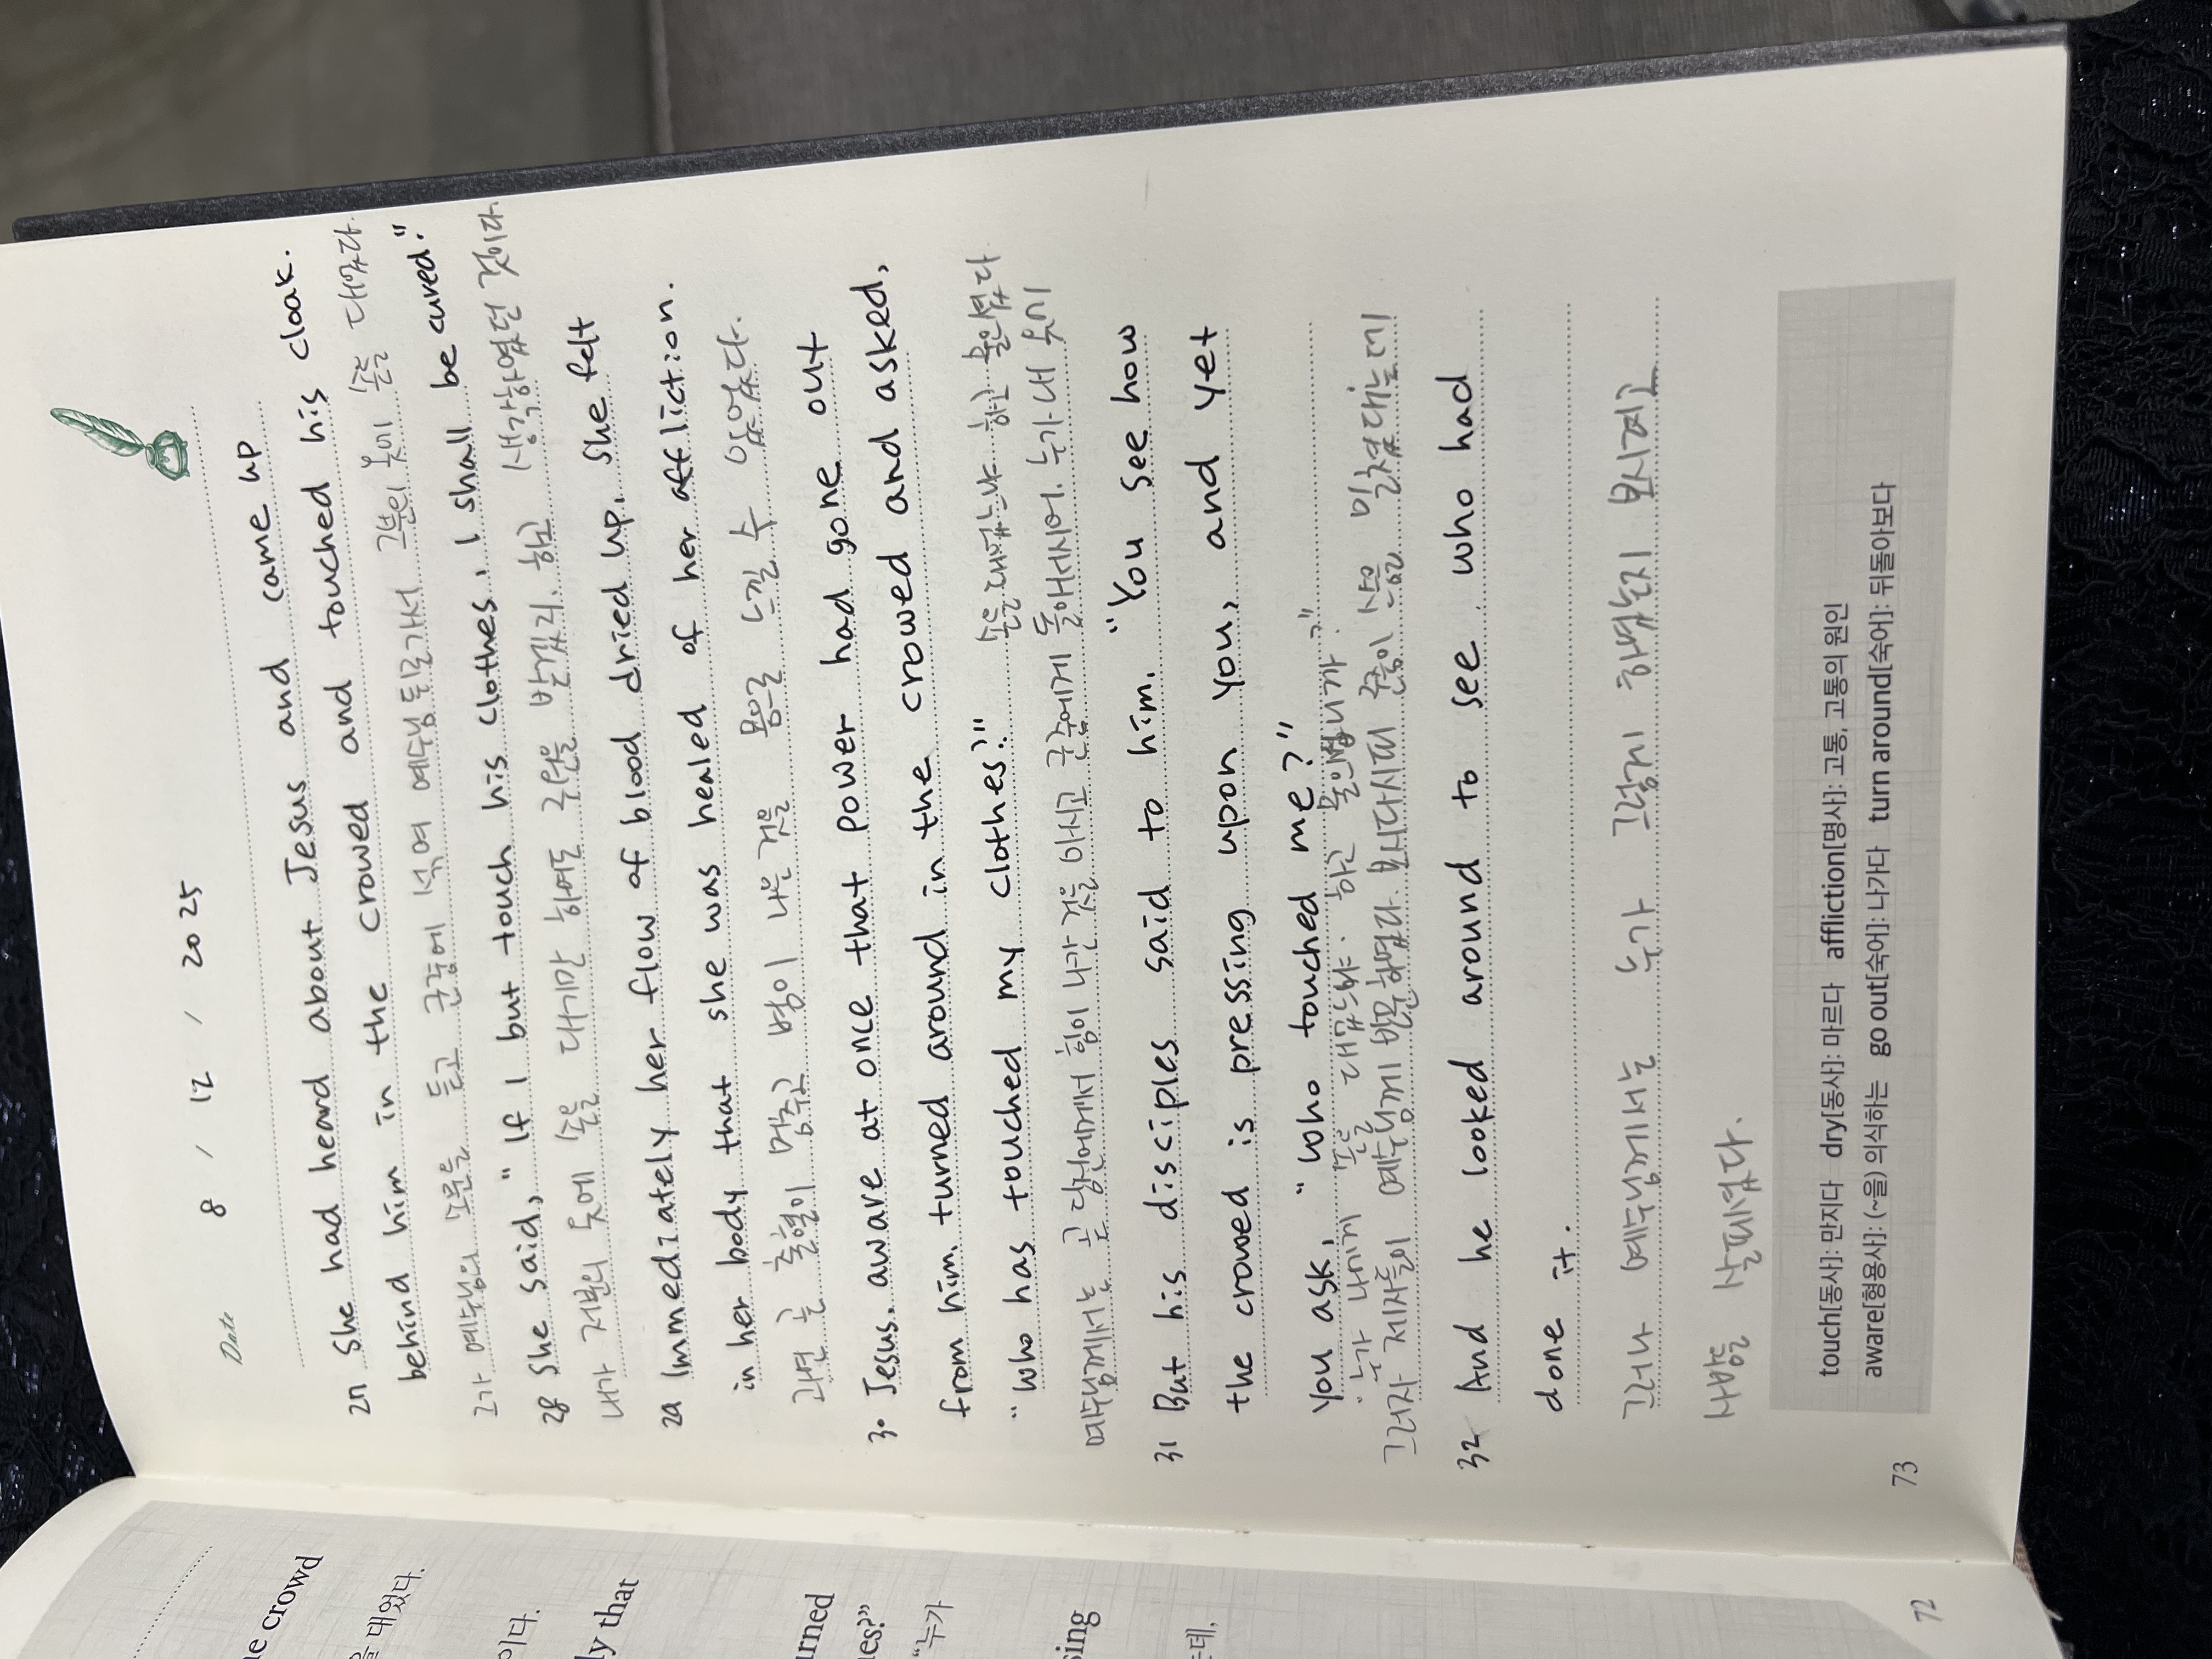 ne crowd
을 대었다.
이다.
ly that
urned
es?”
“누가
sing
는데,
72
Date 8 / 12 / 2025
27 She had heard about Jesus and came up
behind him in the crowed and touched his cloak.
그가 예수님의 소문을 듣고 군중에 섞여 예수님 뒤로 가서 그분의 옷에 손을 대었다.
28 She said, "If I but touch his clothes, I shall be cured."
내가 저분의 옷에 손을 대기만 하여도 구원을 받겠지. 하고 생각하였던 것이다.
29 Immediately her flow of blood dried up. She felt
in her body that she was healed of her affliction.
과연 곧 출혈이 멈추고 병이 나은 것을 몸으로 느낄 수 있었다.
30 Jesus, aware at once that power had gone out
from him, turned around in the crowed and asked,
"Who has touched my clothes?" 손을 대었느냐 하고 물으셨다
예수님께서는 곧 당신에게서 힘이 나간 것을 아시고 군중에게 돌아서시어. 누가 내 옷에
31 But his disciples said to him. "You see how
the crowed is pressing upon you, and yet
You ask, "who touched me?"
"누가 나에게 손을 대었느냐. 하고 물으십니까?"
그러자 제자들이 예수님께 반문하였다. 보시다시피 군중이 스승님을 밀쳐 대는데
32 And he looked around to see who had
done it.
그러나 예수님께서는 누가 그렇게 하였는지 보시려고
사방을 살피셨다.
touch[동사]: 만지다 dry[동사]: 마르다 affliction[명사]: 고통, 고통의 원인
aware[형용사]: (~을) 의식하는 go out[숙어]: 나가다 turn around[숙어]: 뒤돌아보다
73